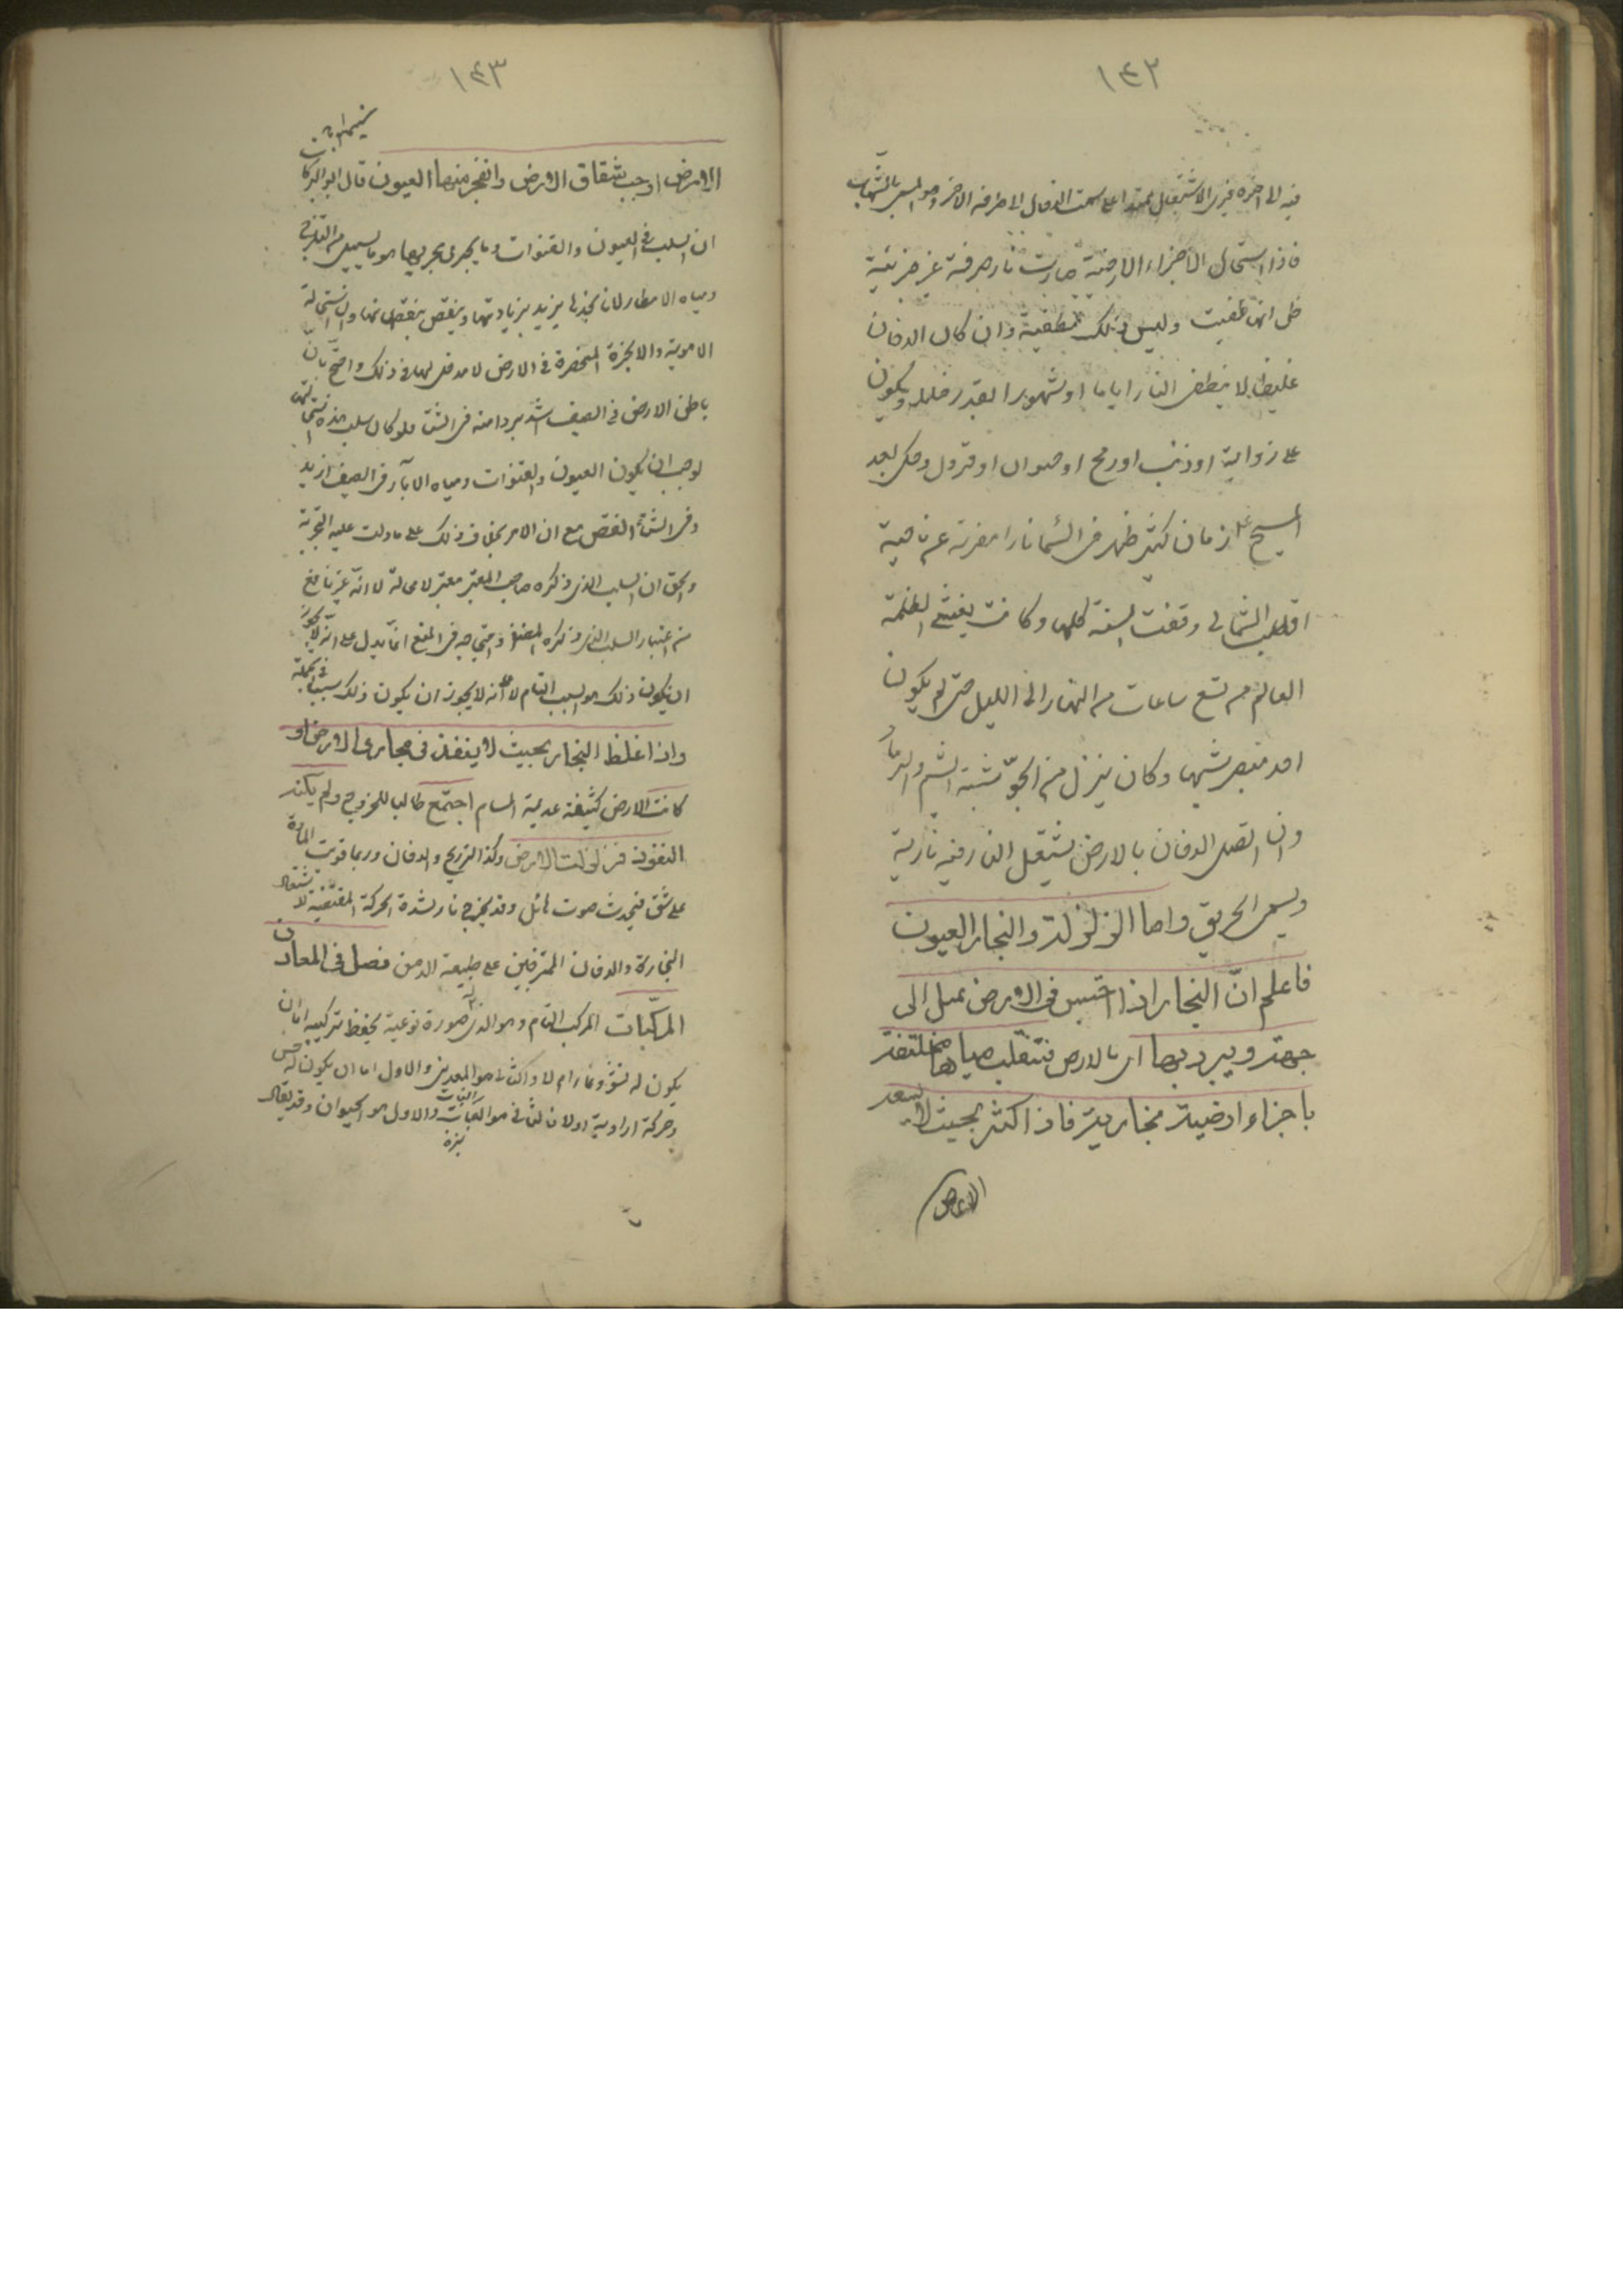 ١٤٢
فيه الى اخره فيرى الاشتعال ممتدا على سمت الدخان الى طرفه الاخر وهو المسمى بالشهاب
فاذا استحال الاجزاء الارضية صارت نارا صرفة غير مرئية
ظن انها طفيت وليس ذلك بطفية وان كان الدخان
غليظا لا ينطفى النار اياما او شهورا بقدر غلظه ويكون
على ذوابة او ذنب او رمح او حيوان او قرون وحكى بعد
المسيح بزمان كثير ظهر فى السماء نار مضطربة عن ناحية
القطب الشمالى وبقيت السنة كلها وكانت يغشى الظلمة
العالم من تسع ساعات من النهار الى الليل حتى لم يكون
احد يبصر شيها وكان ينزل من الجوّ شبه الهشيم والرماد
وان اتصل الدخان بالارض يشتعل النار فيه نازلة
ويسمى الحريق واما الزلزلة وانفجار العيون
فاعلم انّ البخار اذا احتبس فى الارض يميل الى
جهة ويبرد بها اى بالارض فينقلب مياها مختلطة
باجزاء ارضية بخارية فاذا كثر بحيث لا يسعه
الارض
١٤٣
الارض اوجب انشقاق الارض وانفجر منها العيون قال ابو البركات
ان السبب فى العيون والقنوات وما يجرى مجريها هو ما يسيل من الثلوج
ومياه الامطار لانا نجدها يزيد بزيادتها وينقص بنقصانها وان استحالة
الاهوية والابخرة المنحصرة فى الارض لا مدخل لها فى ذلك واحتج بان
باطن الارض فى الصيف اشد بردا منه فى الشتاء فلو كان سبب هذه استحالتها
لوجب ان يكون العيون والقنوات ومياه الابآر فى الصيف ازيد
وفى الشتاء انقص مع ان الامر بخلاف ذلك على ما دلت عليه التجربة
والحق ان السبب الذى ذكره صاحب المعتبر معتبر لا محالة الا انه غير مانع
من اعتبار السبب الذى ذكره المصنف واحتجاجه فى المنع انما يدل على انه لا يجوز
ان يكون ذلك هو السبب التام لا على انه لا يجوز ان يكون ذلك سببا فى الجملة
واذا غلظ البخار بحيث لا ينفذ فى مجارى الارض او
كانت الارض كثيفة عديمة المسام اجتمع طالبا للخروج ولم يمكنه
النفوذ فزلزلت الارض وكذا الريح والدخان وربما قويت المادة
على شق فيحدث صوت هائل وقد يخرج نار لشدة الحركة المقتضية لاشتعال
البخار والدخان الممتزجين على طبيعة الدهن فصل فى المعادن
المركبات المركب التام وهو الذى له صورة نوعية يحفظ تركيبه اما ان
يكون له نشو ونماء ام لا والثانى هو المعدن والاول اما ان يكون له حس
وحركة ارادية او لا فالثانى هو النبات والاول هو الحيوان وقد يقال